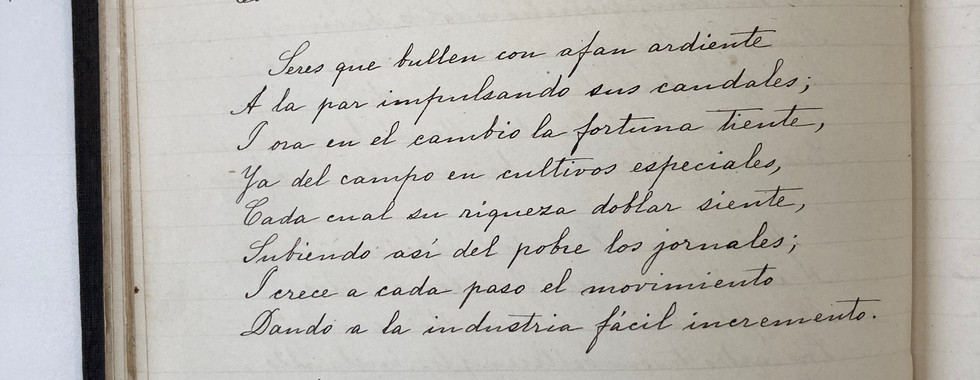 Seres que bullen con afan ardiente
A la par impulsando sus caudales;
I ora en el cambio la fortuna tiente,
Ya del campo en cultivos especiales,
Cada cual su riqueza doblar siente,
Subiendo así del pobre los jornales;
I crece a cada paso el movimiento
Dando a la industria fácil incremento.